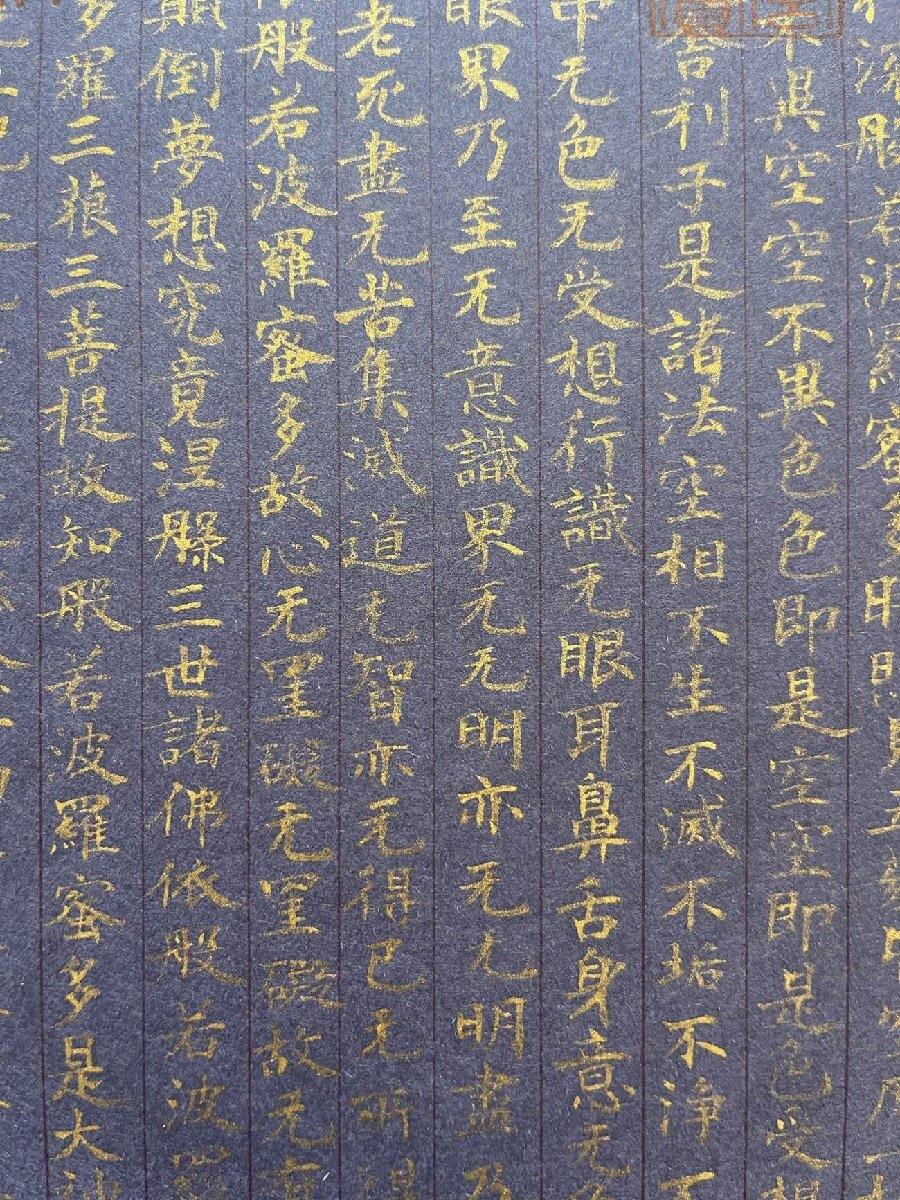 深般若波羅蜜多時照見五蘊
不異空空不異色色即是空空即是色受想
舍利子是諸法空相不生不滅不垢不淨不
中无色无受想行識无眼耳鼻舌身意无色
眼界乃至无意識界无无明亦无无明盡乃
老死盡无苦集滅道无智亦无得已无所得
般若波羅蜜多故心无罣礙无罣礙故无有
顛倒夢想究竟涅槃三世諸佛依般若波羅
多羅三藐三菩提故知般若波羅蜜多是大神